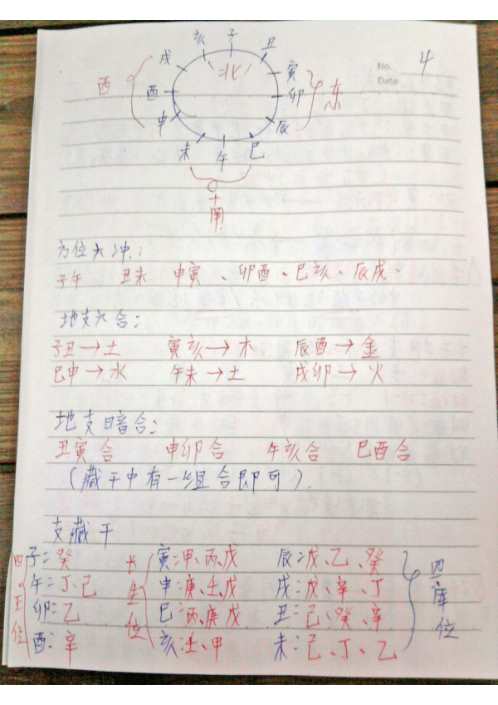 No. 4
Date
亥 子 丑
戌 北 寅
西 酉 卯 东
申 辰
未 午 巳
南
方位六冲:
子午 丑未 申寅、卯酉、巳亥、辰戌.
地支六合:
子丑→土 寅亥→木 辰酉→金
巳申→水 午未→土 戌卯→火
地支暗合:
丑寅合 申卯合 午亥合 巳酉合
(藏干中有一组合即可).
支藏干
四正位 子:癸 四生位 寅:甲、丙、戊 辰:戊、乙、癸 四库位
午:丁、己 申:庚、壬、戊 戌:戊、辛、丁
卯:乙 巳:丙、庚、戊 丑:己、癸、辛
酉:辛 亥:壬、甲 未:己、丁、乙